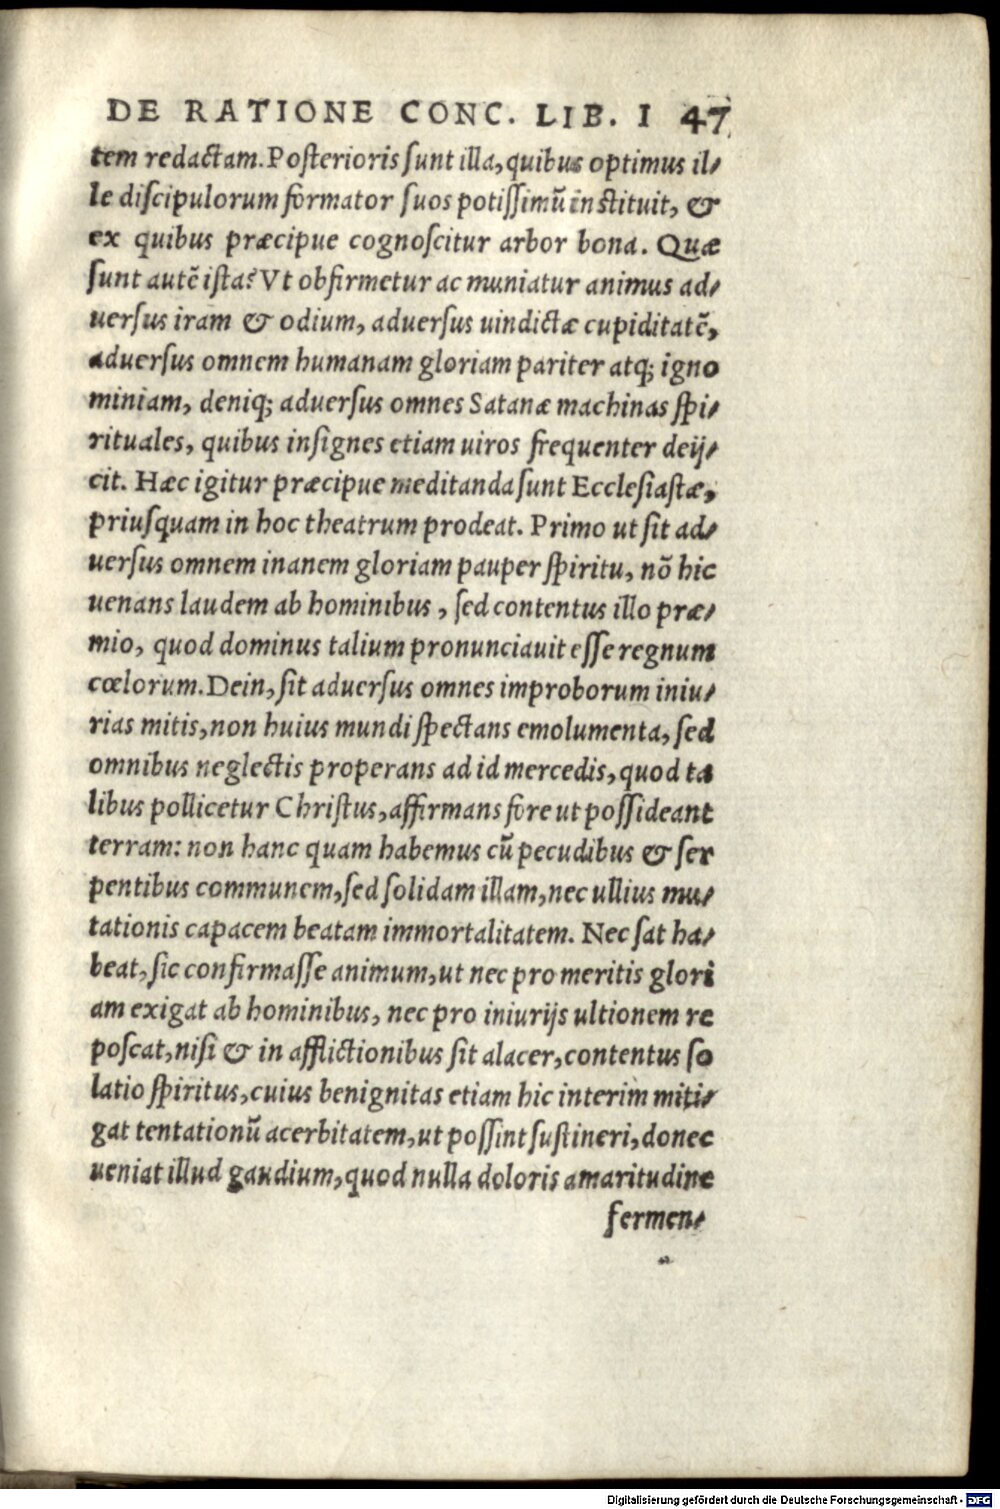 DE RATIONE CONC. LIB. I 47
tem redactam. Posterioris sunt illa, quibus optimus il-
le discipulorum formator suos potissimũ instituit, &
ex quibus præcipue cognoscitur arbor bona. Quæ
sunt autẽ ista? Vt obfirmetur ac muniatur animus ad-
uersus iram & odium, aduersus uindictæ cupiditatẽ,
aduersus omnem humanam gloriam pariter atq; igno
miniam, deniq; aduersus omnes Satanæ machinas spi-
rituales, quibus insignes etiam uiros frequenter deij-
cit. Hæc igitur præcipue meditanda sunt Ecclesiastæ,
priusquam in hoc theatrum prodeat. Primo ut sit ad-
uersus omnem inanem gloriam pauper spiritu, nõ hic
uenans laudem ab hominibus, sed contentus illo præ-
mio, quod dominus talium pronunciauit esse regnum
cœlorum. Dein, sit aduersus omnes improborum iniu-
rias mitis, non huius mundi spectans emolumenta, sed
omnibus neglectis properans ad id mercedis, quod ta
libus pollicetur Christus, affirmans fore ut possideant
terram: non hanc quam habemus cũ pecudibus & ser
pentibus communem, sed solidam illam, nec ullius mu-
tationis capacem beatam immortalitatem. Nec sat ha-
beat, sic confirmasse animum, ut nec pro meritis glori
am exigat ab hominibus, nec pro iniurijs ultionem re
poscat, nisi & in afflictionibus sit alacer, contentus so
latio spiritus, cuius benignitas etiam hic interim miti-
gat tentationũ acerbitatem, ut possint sustineri, donec
ueniat illud gaudium, quod nulla doloris amaritudine
fermen-
Digitalisierung gefördert durch die Deutsche Forschungsgemeinschaft - DFG